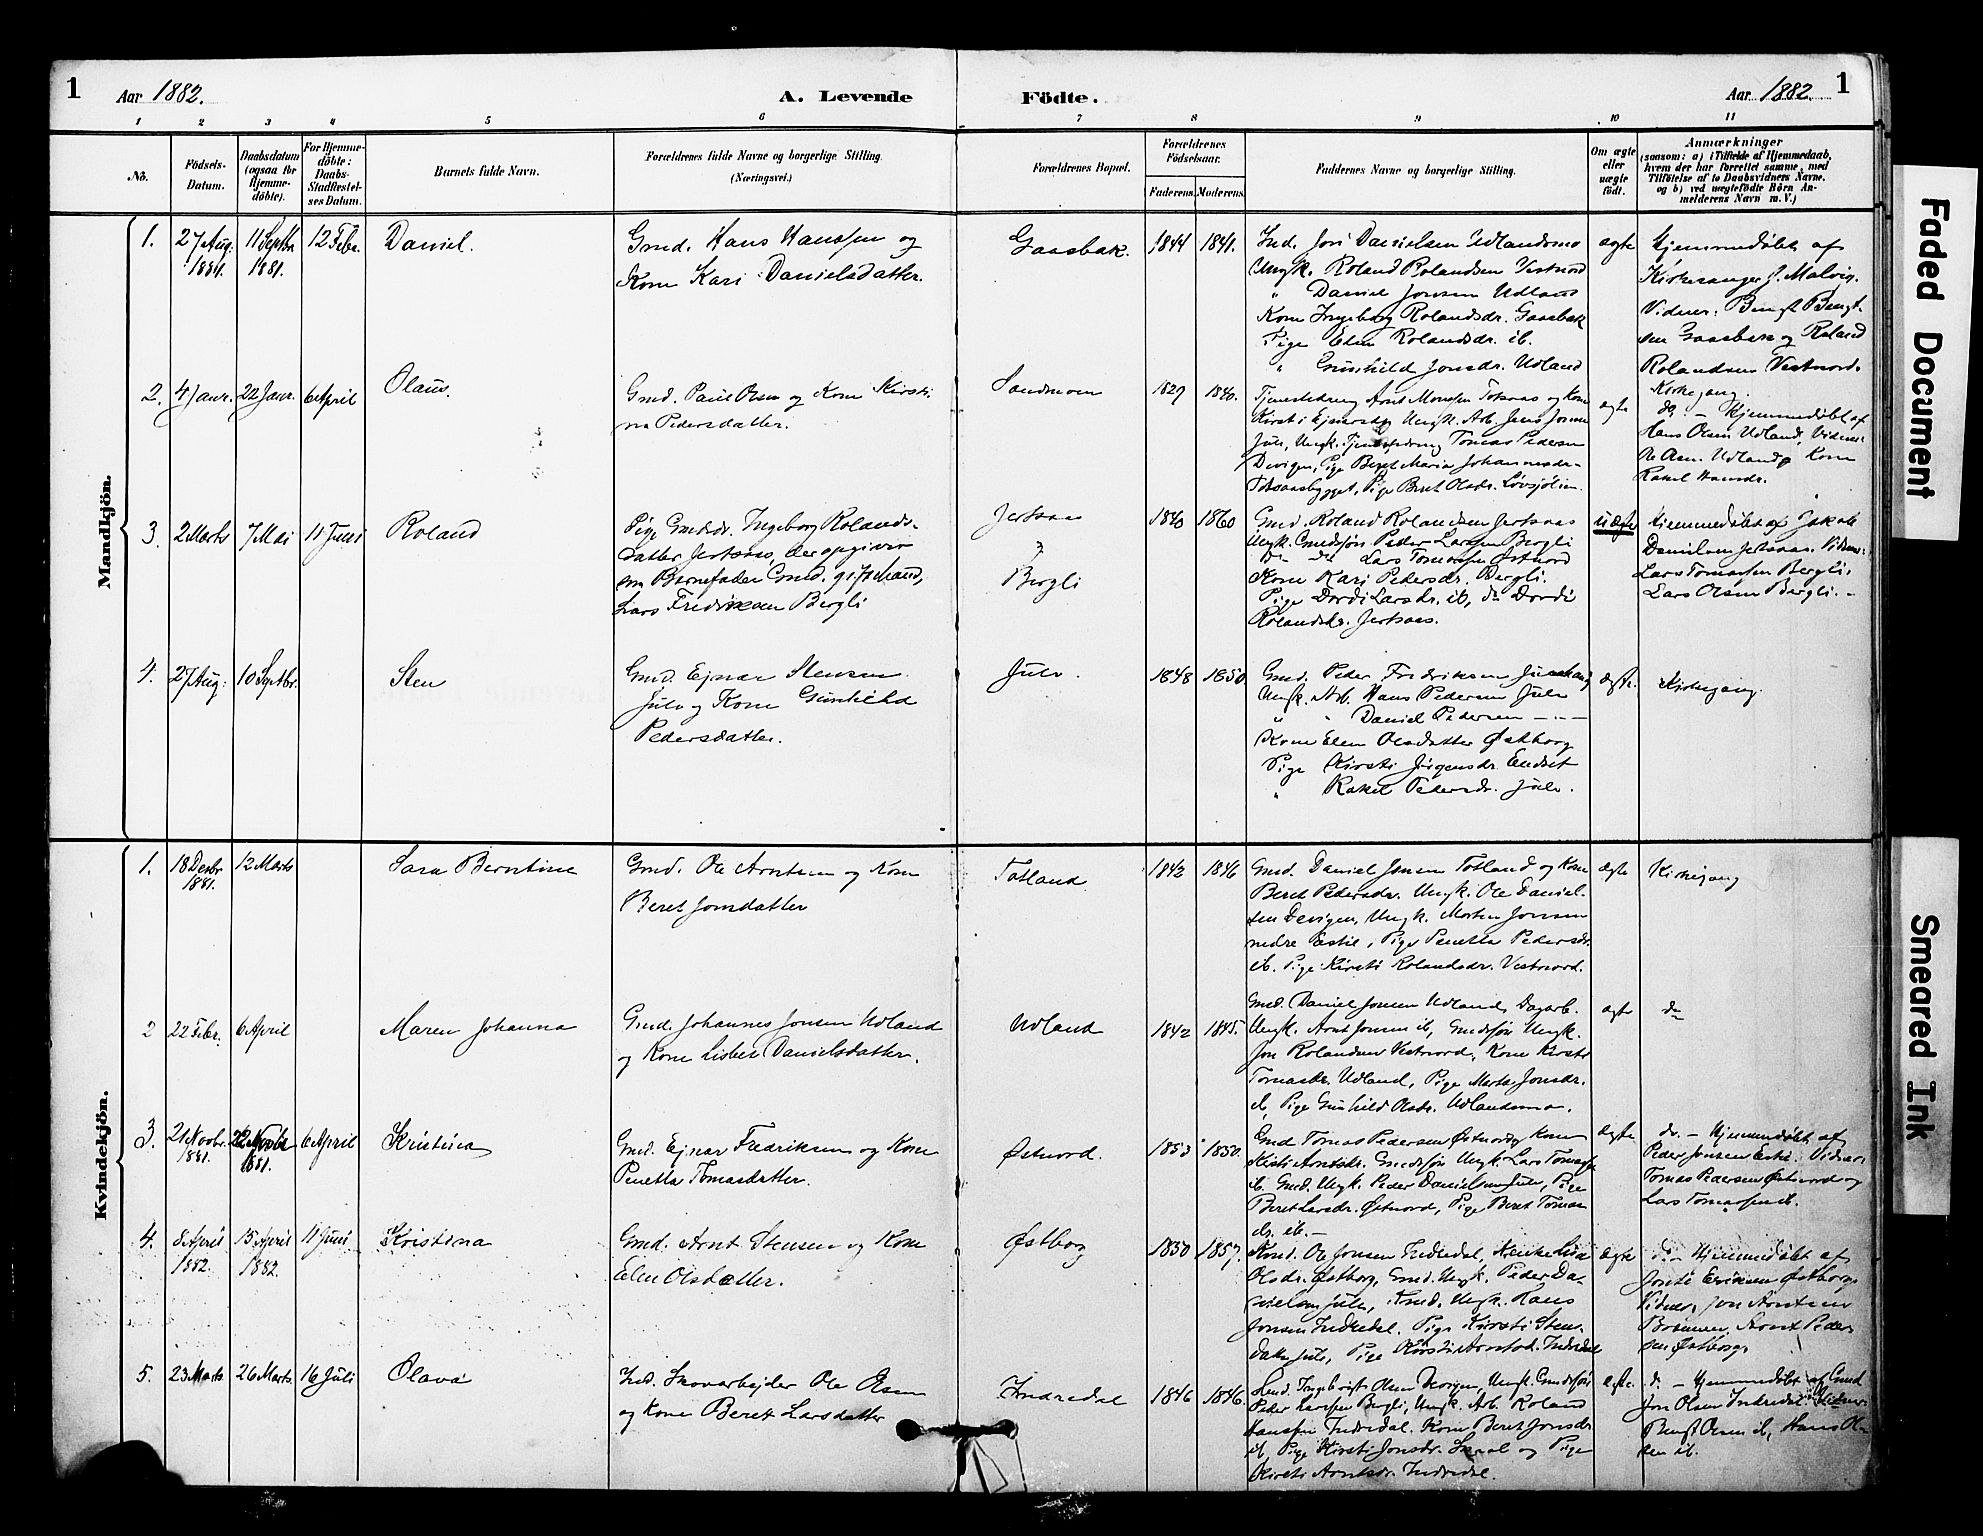 1
Aar 1882.
A. Levende
Födte.
Aar 1882.
1
1 2 3 4 5 6 7 8 9 10 11
No.
Födsels-
Datum.
Daabsdatum
(ogsaa for
Hjemme-
döbte).
For Hjemme-
döbte:
Daabs-
Stadfæstel-
ses Datum.
Barnets fulde Navn.
Forældrenes fulde Navne og borgerlige Stilling.
(Næringsvei.)
Forældrenes Bopæl.
Forældrenes
Födselsaar.
Faderens. Moderens.
Faddernes Navne og borgerlige Stilling.
Om ægte
eller
uægte
födt.
Anmærkninger
(saasom: a) i Tilfælde af Hjemmedaab,
hvem der har forrettet samme, med
Tilföielse af to Daabsvidners Navne,
og b) ved uægtefödte Börn An-
melderens Navn m. V.)
Mandkjön.
1.
27 Aug.
1881.
11 Septbr
1881.
12 Febr.
Daniel.
Gmd. Hans Hansen og
Kone Kari Danielsdatter.
Gaasbak.
1844
1841.
Ind. Jon Danielsen Udlandsmo
Ungk. Roland Rolandsen Vestnord
" Daniel Jonsen Udland
Kone Ingeborg Rolandsdr. Gaasbak
Pige Elen Rolandsdr. ib.
" Gunhild Jonsdr. Udland
ægte
Hjemmedøbt af
Kirkesanger J. Malvig.
Vidner: Bengt Bengt-
sen Gaasbak og Roland
Rolandsen Vestnord.
Kirkegang.
2.
4 Janr.
22 Janr.
6 April
Olaus.
Gmd. Paul Olsen og Kone Kirsti-
na Pedersdatter.
Sandmoen
1829
1840.
Tjenestedreng Arnt Monsen Totsaas og Kone
Kirsti Ejnersdr Ungk. Arb. Jens Jonsen
Julv, Ungk. Tjenestedreng Tomas Pedersen
Devigen, Pige Beret Maria Johannesdr.
Totsaasbygget, Pige Beret Olsdr. Løvsjølien.
ægte
do. – Hjemmedøbt af
Hans Olsen Udland. Vidner:
Ole Asn. Udland og Kone
Rakel Hansdr.
3.
2 Marts
7 Mai
11 Juni
Roland
Pige Gmdsdr. Ingeborg Rolands-
datter Jertsaas, der opgiver
som Barnefader Gmd. gift Mand,
Lars Fredriksen Bergli
Jertsaas
Bergli
1840
1860
Gmd. Roland Rolandsen Jertsaas
Ungk. Gmdssøn Peder Larsen Bergli
Do Do Lars Tomassen Østnord
Kone Kari Pedersdr. Bergli.
Pige Dordi Larsdr. ib, do Dordi
Rolandsdr. Jertsaas.
uægte
Hjemmedøbt af Jakob
Danielsen Jertsaas. Vidner:
Lars Tomassen Bergli,
Lars Olsen Bergli. –
4.
27 Aug:
10 Septbr.
Sten
Gmd. Ejnar Stensen
Julv og Kone Gunhild
Pedersdatter.
Julv.
1848
1850
Gmd. Peder Fredriksen
Ungk. Arb. Hans Pedersen Julv
" " Daniel Pedersen – " –
Kone Elen Olsdatter Østborg
Pige Kirsti Jørgensdr. Endset
" Rakel Pedersdr. Julv.
ægte.
Kirkegang.
Kvindekjön.
1.
18 Desbr
1881.
12 Marts
Sara Berntine
Gmd. Ole Arntsen og Kone
Beret Jonsdatter
Totland
1842
1846
Gmd. Daniel Jonsen Totland og Kone
Beret Pedersdr. Ungk. Ole Daniel-
sen Devigen, Ungk. Morten Jonsen
nedre Estil, Pige Penetta Pedersdr.
ib. Pige Kirsti Rolandsdr. Vestnord.
ægte
Kirkegang
2
22 Febr.
6 April
Maren Johanna
Gmd. Johannes Jonsen Udland
og Kone Lisbet Danielsdatter.
Udland
1842
1845.
Gmd. Daniel Jonsen Udland, Dagarb.
Ungk. Arnt Jonsen ib, Gmdssøn Ungk.
Jon Rolandsen Vestnord, Kone Kirsti
Tomasdr. Udland, Pige Marta Jonsdr.
ib, Pige Gunhild Olsdr. Udlandsmo.
ægte
do
3.
21 Novbr.
1881.
22 Novbr
1881.
6 April
Kristina
Gmd. Ejnar Fredriksen og Kone
Penetta Tomasdatter.
Østnord.
1853
1850.
Gmd Tomas Pedersen Østnord og Kone
Kirsti Arntsdr. Gmdssøn Ungk. Lars Tomassen
ib. Gmd. Ungk. Peder Danielsen Julv, Pige
Beret Larsdr. Østnord, Pige Beret Tomas-
dr. ib. –
ægte
do. – Hjemmedøbt af
Peder Jonsen Estil. Vidner:
Tomas Pedersen Østnord og
Lars Tomassen ib.
4.
8 April
1882.
15 April
1882.
11 Juni
Kristina
Gmd. Arnt Stensen og Kone
Elen Olsdatter.
Østborg
1850
1857.
Gmd. Ole Jonsen Indredal, Lisa
Olsdr. Østborg, Gmd. Ungk. Peder Da-
nielsen Julv, Gmd. Ungk. Hans
Jonsen Indredal, Pige Kirsti Stens-
datr Julv, Pige Kirsti Arntsd. Indredal
ægte
do – Hjemmedøbt af
Eriksen Østborg.
Vidner, Jon Arntsen
Arnt Peder-
sen Østborg.
5.
23 Marts
26 Marts.
16 Juli
Olava
Ind. Skovarbejder Ole Olsen
og Kone Beret Larsdatter
Indredal
1846
1846.
Gmd. Ingebrigt Olsen Ungk. Gmdssøn
Peder Larsen Bergli, Ungk. Arb. Roland
Hansen Indredal. Kone Beret Jonsdr.
ib, Pige Kirsti Jonsdr. og Pige
Kirsti Arntsdr. Indredal.
ægte.
do. – Hjemmedøbt af Gmd
Jon Olsen Indredal. Vidner:
Bengt Olsen ib, Hans Ol-
sen ib.
Faded Document
Smeared Ink